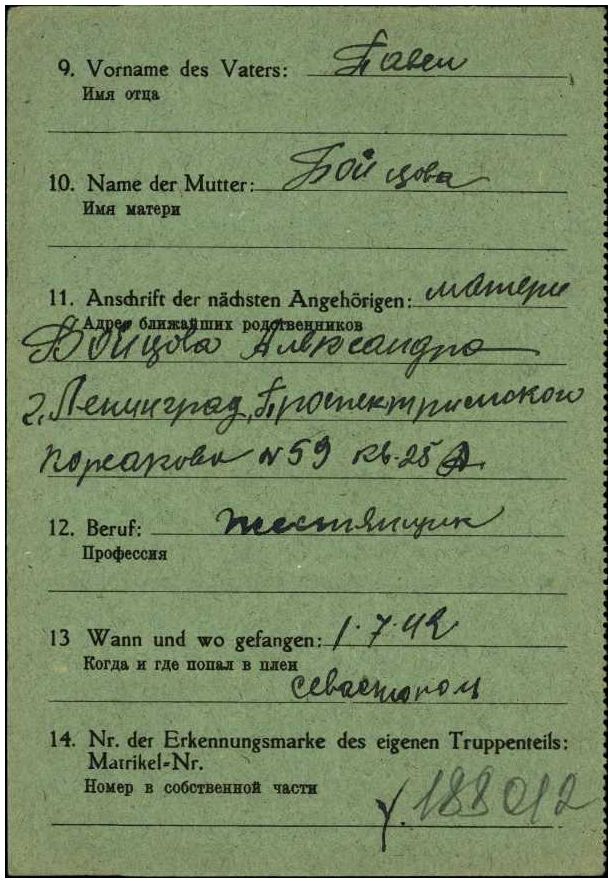 9. Vorname des Vaters: Павел
Имя отца
10. Name der Mutter: Бойцова
Имя матери
11. Anschrift der nächsten Angehörigen: матери
Адрес ближайших родственников
Бойцова Александра
г. Ленинград, Проспект римского
Корсакова N 59 кв. 25
12. Beruf: жестянщик
Профессия
13 Wann und wo gefangen: 1.7.42
Когда и где попал в плен
Севастополь
14. Nr. der Erkennungsmarke des eigenen Truppenteils:
Matrikel=Nr.
Номер в собственной части
188012